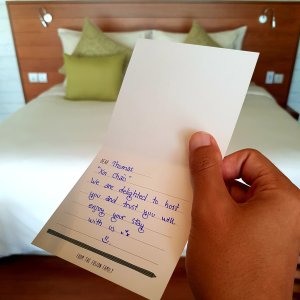 DEAR Thomas
"Xin Chào"
We are delighted to host
you and trust you will
enjoy your stay
with us
FROM THE FUSION FAMILY